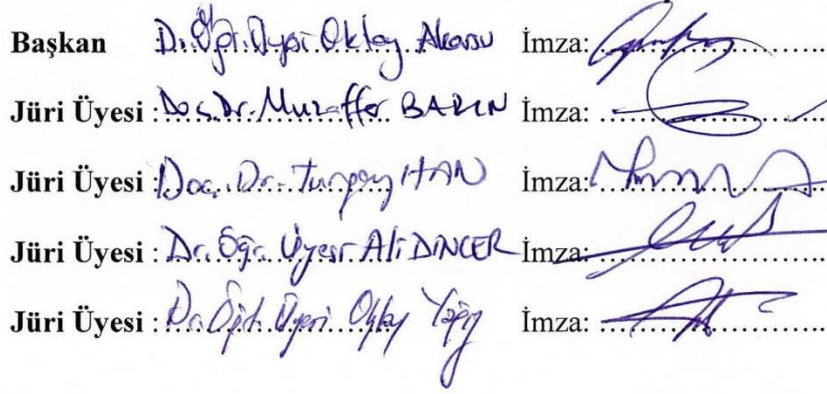 Başkan : Dr. Öğr. Üyesi Oktay Aksoy İmza:
Jüri Üyesi : Doç. Dr. Muzaffer İmza:
Jüri Üyesi : Doç. Dr. Turgay HAN İmza:
Jüri Üyesi : Dr. Öğr. Üyesi Ali DİNCER İmza:
Jüri Üyesi : Dr. Öğt. Üyesi İmza: